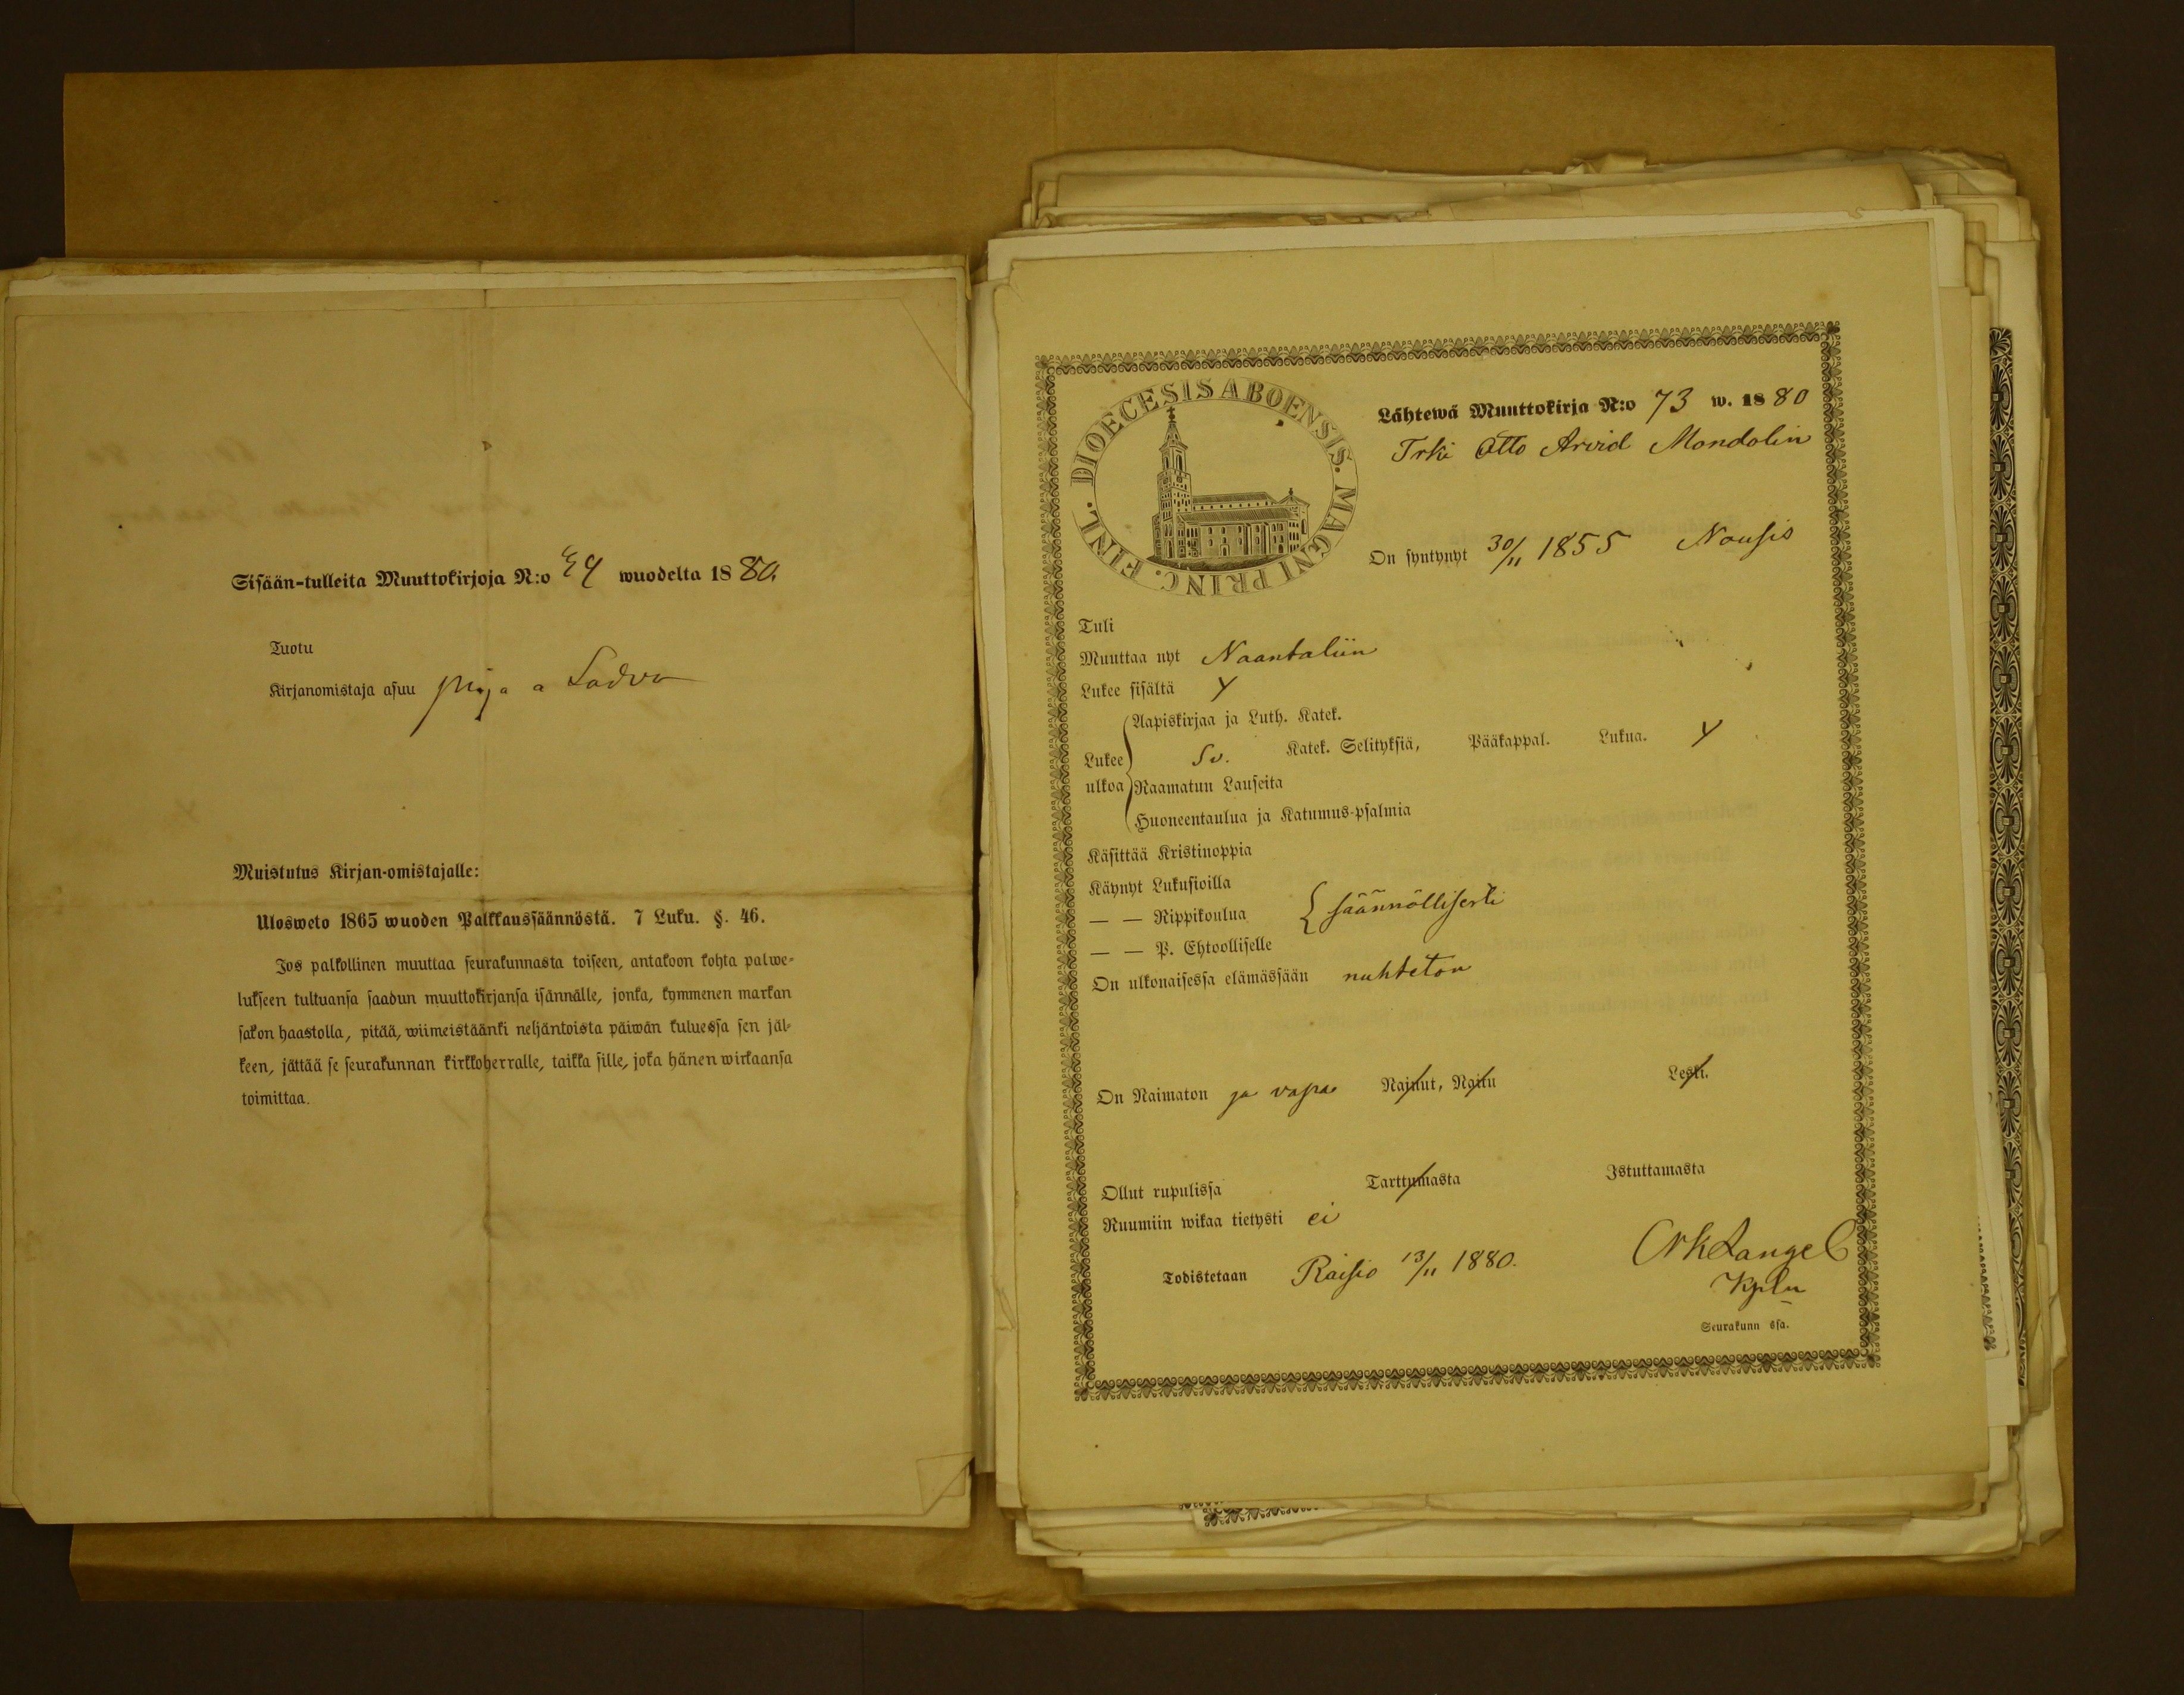 Sisään-tulleita Muuttokirjoja N:o 24 wuodelta 1880.
Tuotu
Kirjanomistaja asuu piga a
Muistutus Kirjan-omistajalle:
Ulosweto 1865 wuoden Palkkaussäännöstä. 7 Luku. §. 46.
Jos palkollinen muuttaa seurakunnasta toiseen, antakoon kohta palwe-
lukseen tultuansa saadun muuttokirjansa isännälle, jonka, kymmenen markan
sakon haastolla, pitää, wiimeistäänki neljäntoista päiwän kuluessa sen jäl-
keen, jättää se seurakunnan kirkkoherralle, taikka sille, joka hänen wirkaansa
toimittaa.
DIOECESIS ABOENSIS. MAGNI PRINC. FINL.
Lähtewä Muuttokirja N:o 73 w. 1880
Trki Otto Arvid Mondolin
On syntynyt 30/11 1855 Nousis
Tuli
Muuttaa nyt Naantaliin
Lukee sisältä y
Aapiskirjaa ja Luth. Katek.
Lukee Sv. Katek. Selityksiä, Pääkappal. Lukua. y
ulkoa Raamatun Lauseita
Huoneentaulua ja Katumus-psalmia
Käsittää Kristinoppia
Käynyt Lukusioilla
— — Rippikoulua säännöllisesti
— — P. Ehtoolliselle
On ulkonaisessa elämässään nuhteton
On Naimaton ja vapa Nainut, Naitu Leski.
Ollut rupulissa Tarttumasta Istuttamasta
Ruumiin wikaa tietysti ei
Todistetaan Raisio 13/11 1880. Langel
Kpln
Seurakunn ssa.